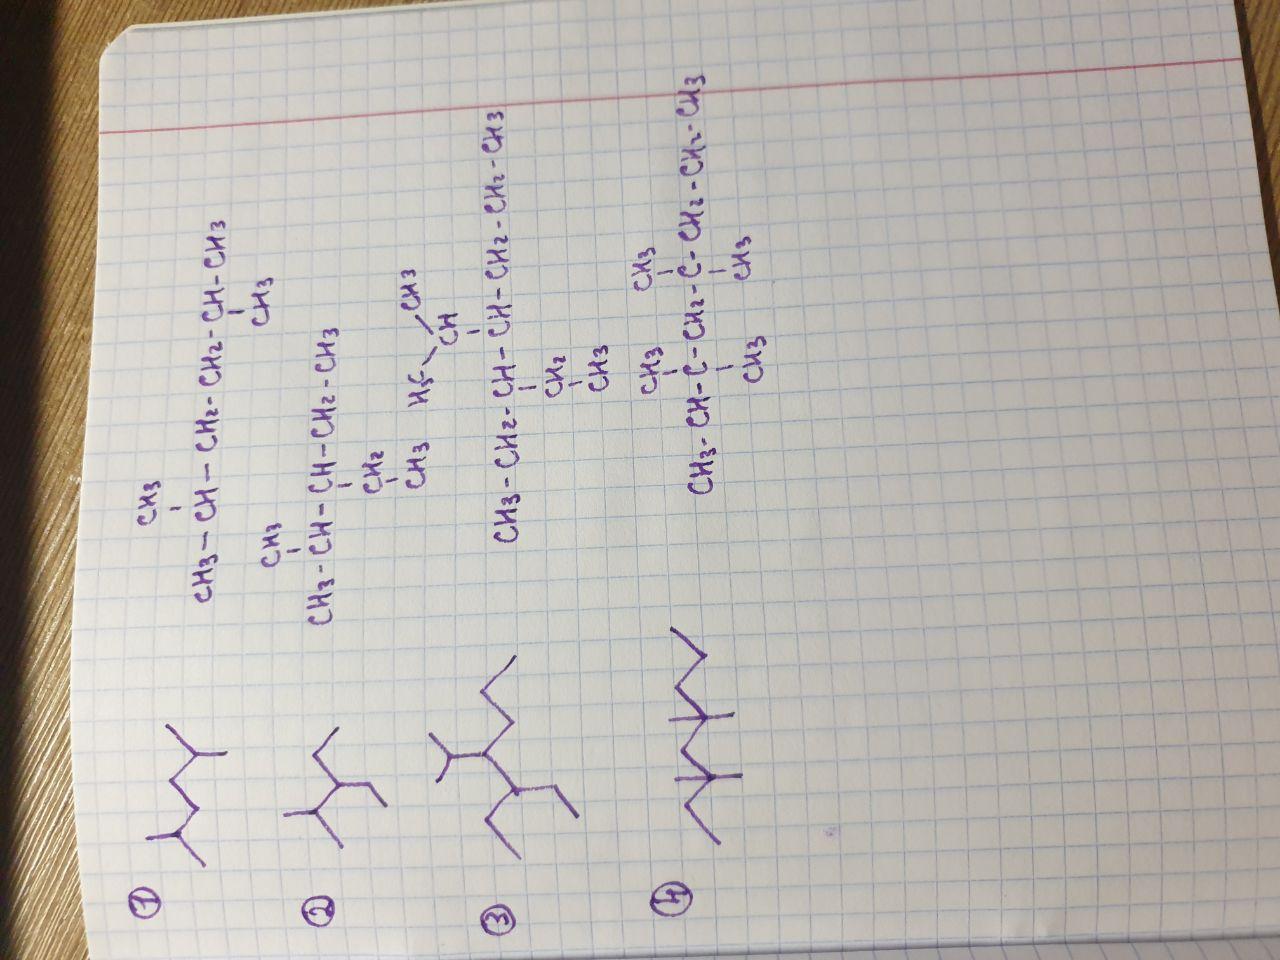 ①
CH3
CH3-CH-CH2-CH2-CH-CH3
CH3
②
CH3
CH3-CH-CH-CH2-CH3
CH2
CH3
③
H3C CH3
CH
CH3-CH2-CH-CH-CH2-CH2-CH3
CH2
CH3
④
CH3 CH3
CH3-CH-C-CH2-C-CH2-CH2-CH3
CH3 CH3